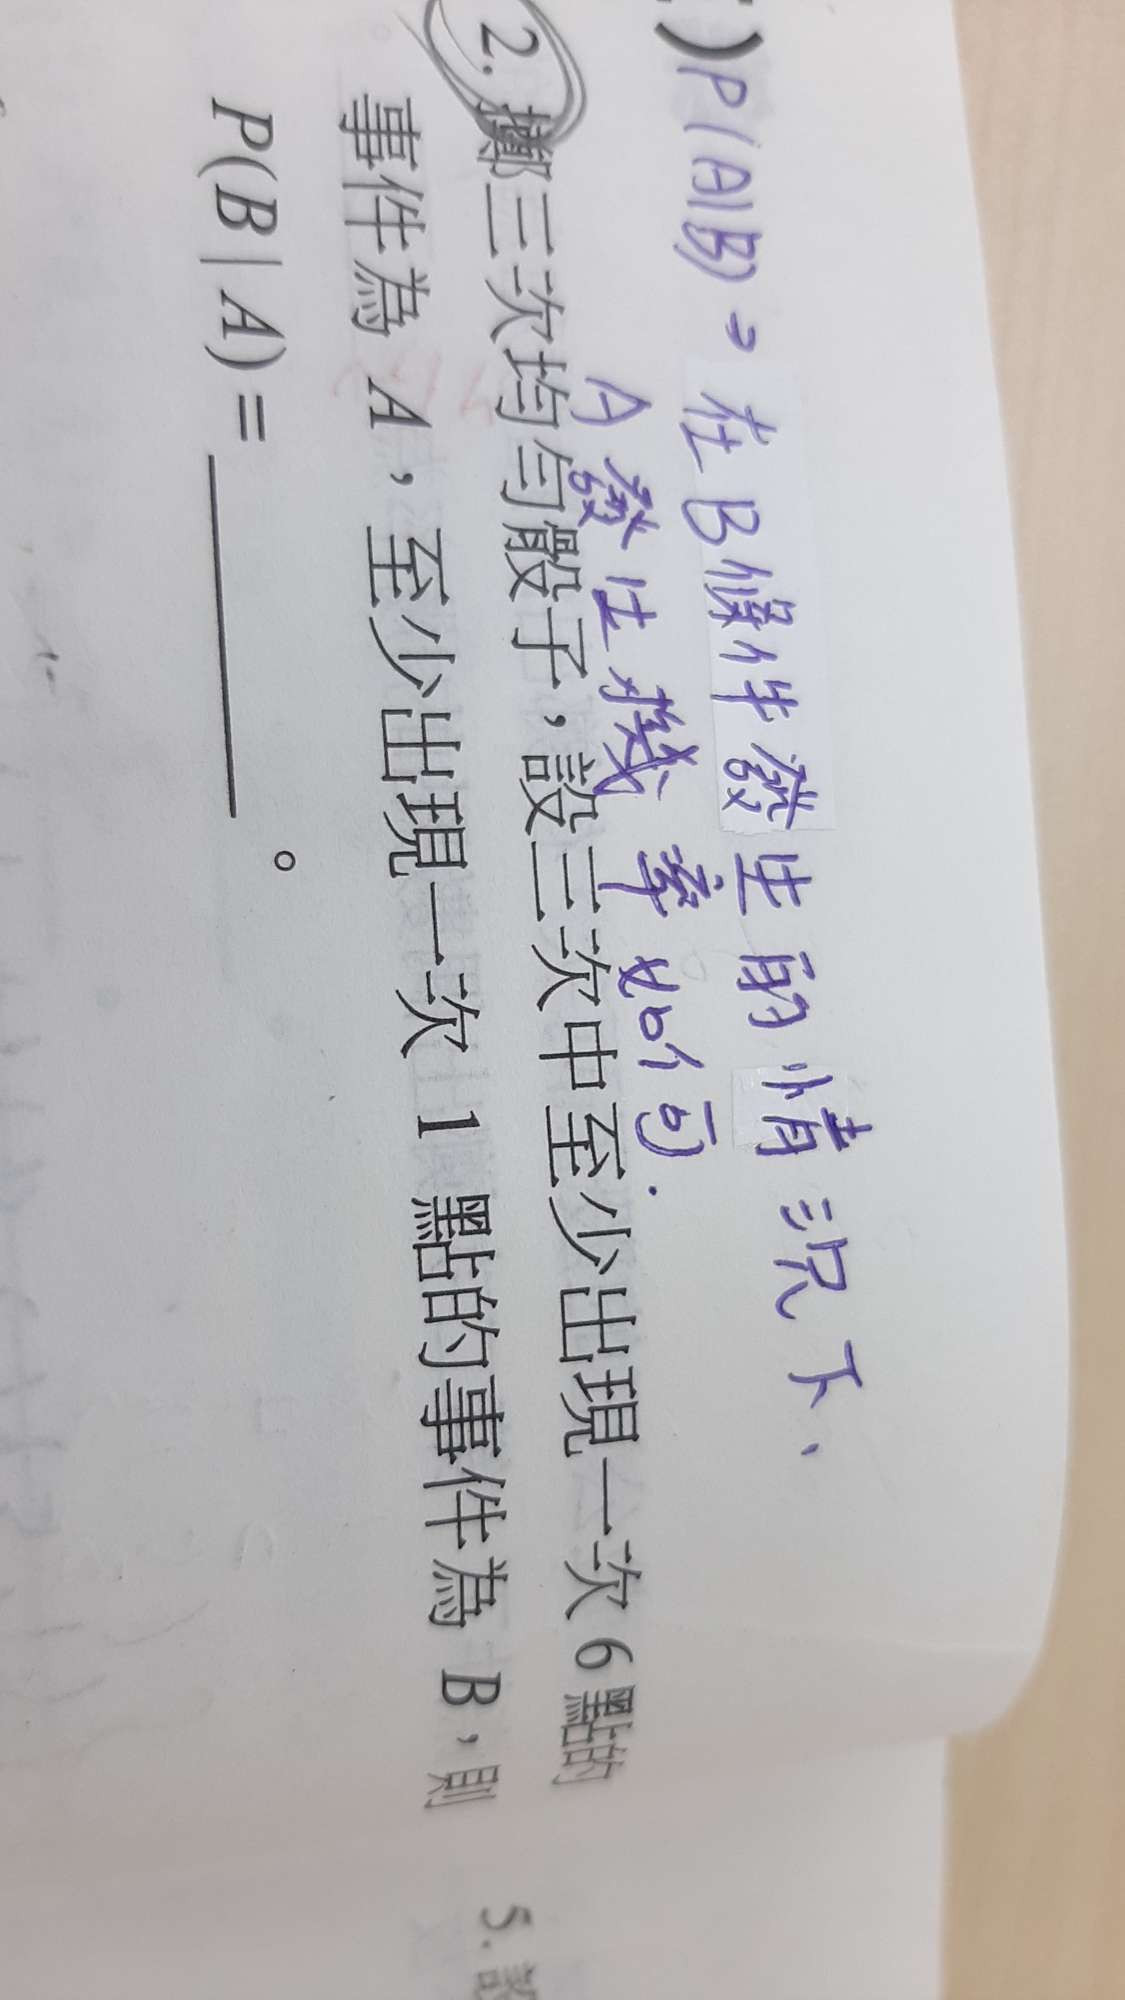 )P(A|B)→在B條件發生的情況下、
A發生機率如何.
2.擲三次均勻骰子,設三次中至少出現一次6點的
事件為A,至少出現一次1點的事件為B,則
P(B|A)=________。
5.設